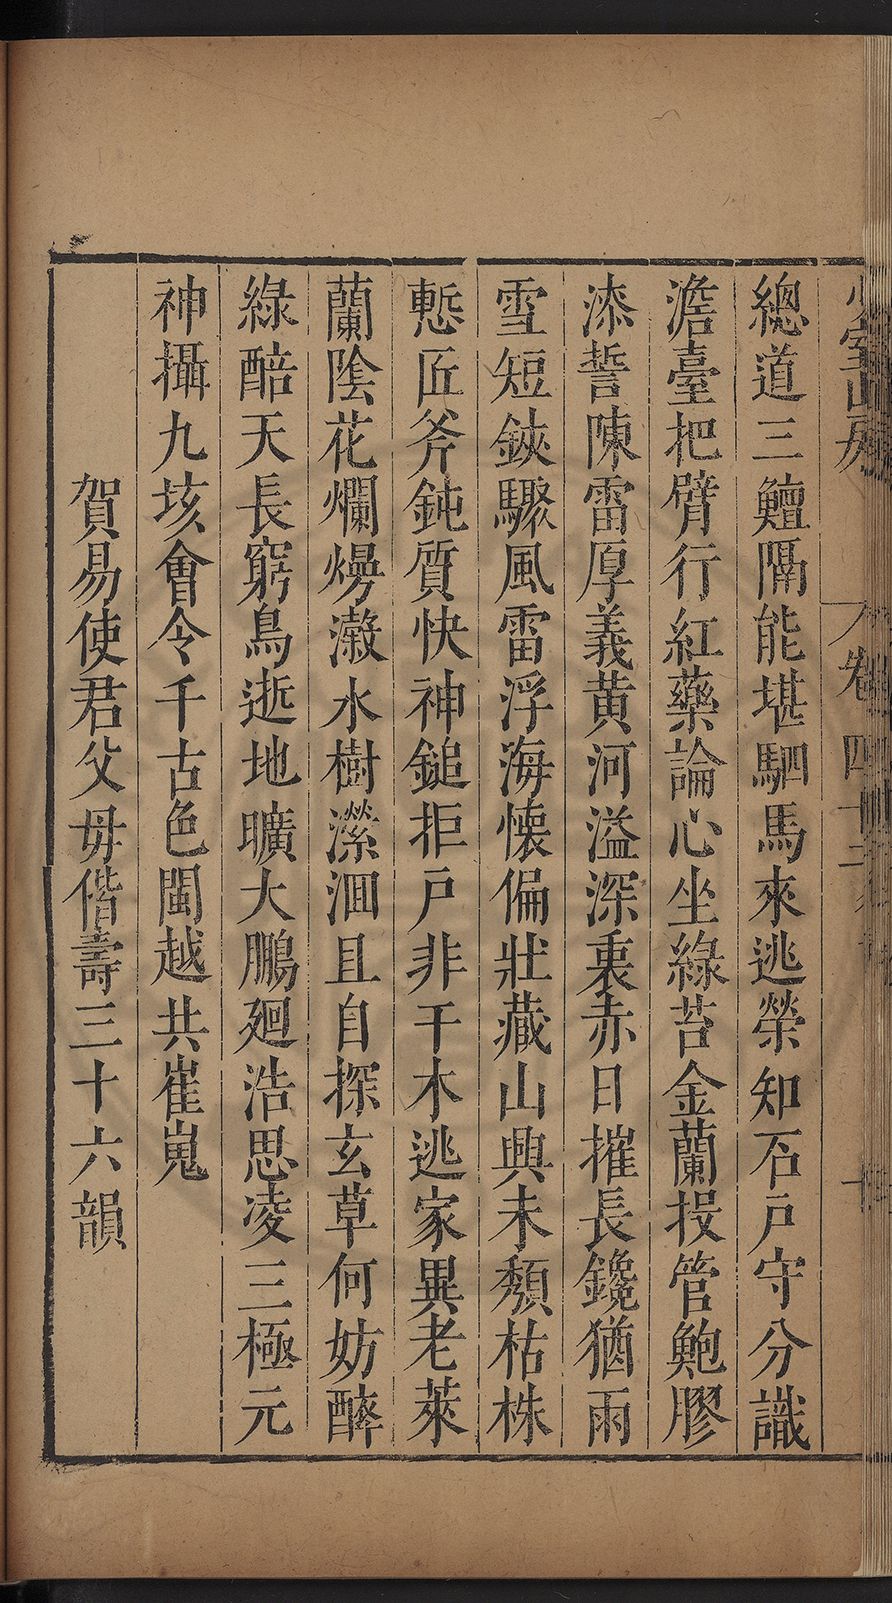 少室山房 卷四十二
總道三鱣隔能堪駟馬來逃榮知石戶守分識
澹臺把臂行紅藥論心坐綠苔金蘭投管鮑膠
漆誓陳雷厚義黃河溢深衷赤日摧長鑱猶雨
雪短鋏驟風雷浮海懷偏壯藏山興未頽枯株
慙匠斧鈍質快神鎚拒戶非干木逃家異老萊
蘭陰花爛熳瀫水樹瀠洄且自探玄草何妨醉
綠醅天長窮鳥逝地曠大鵬廻浩思凌三極元
神攝九垓會令千古色閩越共崔嵬
賀易使君父母偕壽三十六韻